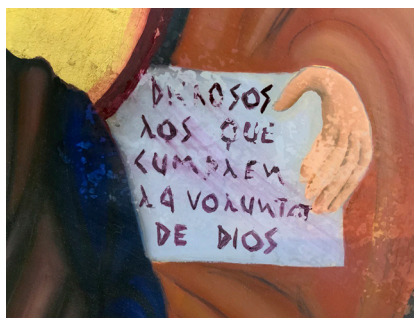 DICHOSOS
LOS QUE
CUMPLEN
LA VOLUNTAD
DE DIOS